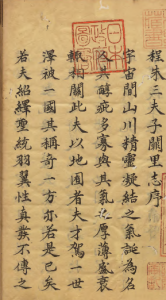 程朱三夫子闕里志序
宇宙間山川精靈凝結之氣誕為名
其醇疵多寡與其氣之厚薄盛衰
輒相關此夫以地囿者夫才駕一世
澤被一國其稱奇一方亦若是已矣
若夫紹繹聖統羽翼性真發不傳之